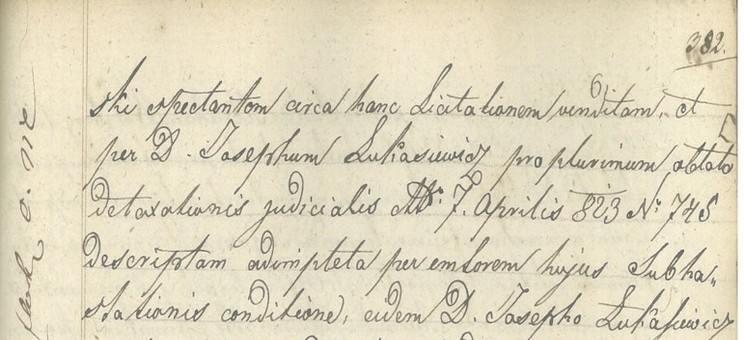 382.
ski spectantem circa hanc Licitationem venditam, et
per D. Josephum Łukasiewicz pro plurimum oblato
detaxationis judicialis 7. Aprilis 823 Nr. 745
descriptam adimpleta per emtorem hujus Subha-
stationis conditione, eidem D. Josepho Łukasiewicz